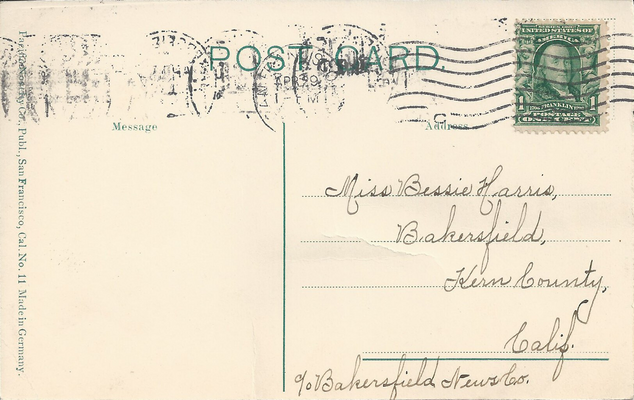 POST CARD
UNITED STATES OF
AMERICA
FRANKLIN
1 1
POSTAGE
ONE CENT
APR 29
M
C
Message
Address
Miss Bessie Harris,
Bakersfield,
Kern County,
Calif.
c/o Bakersfield News Co.
Publ., San Francisco, Cal. No. 11 Made in Germany.